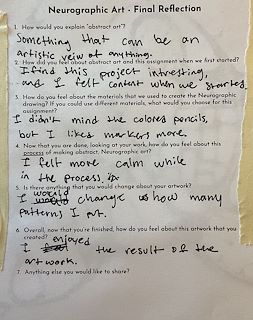 Neurographic Art - Final Reflection
1. How would you explain "abstract art"?
Something that can be an
artistic veiw of anything.
2. How did you feel about abstract art and this assignment when we first started?
I find this project intresting,
and I felt content when we started
3. How do you feel about the materials that we used to create the Neurographic
drawing? If you could use different materials, what would you choose for this
assignment?
I didn't mind the colored pencils,
but I liked markers more.
4. Now that you are done, looking at your work, how do you feel about this
process of making abstract, Neurographic art?
I felt more calm while
in the process
5. Is there anything that you would change about your artwork?
I would change how many
patterns I
6. Overall, now that you're finished, how do you feel about this artwork that you
created?
I enjoyed the result of the
artwork.
7. Anything else you would like to share?